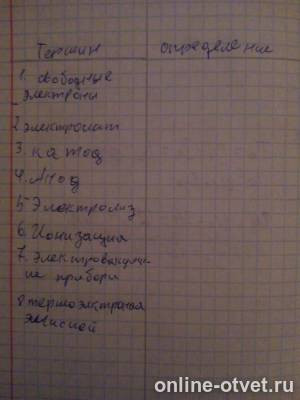 Термин определение
1. свободные
электроны
2 электролит
3. катод
4. Анод
5 Электролиз
6. Ионизация
7. Электровакуумн-
ые приборы
8. термоэлектроная
эмиссией
online-otvet.ru